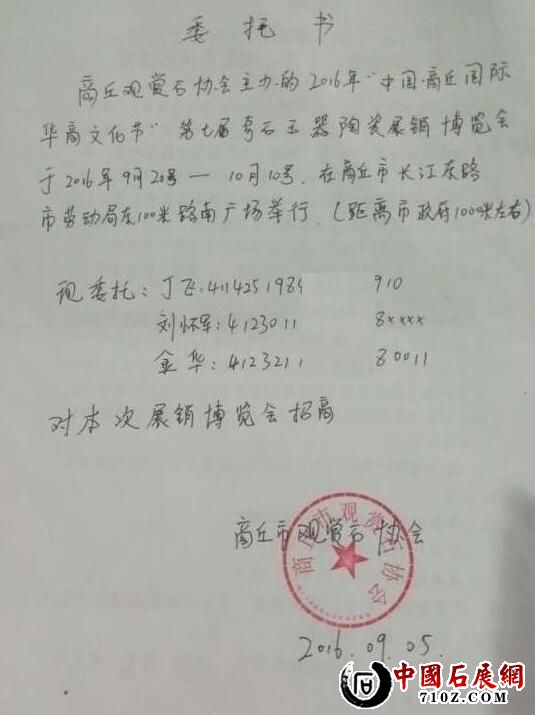 委托书
商丘观赏石协会主办的2016年“中国·商丘国际
华商文化节”第七届奇石玉器陶瓷展销博览会
于2016年9月20号—10月10号.在商丘市长江东路
市劳动局东100米路南广场举行.(距离市政府1000米左右)
现委托:丁飞.411425198 910
刘怀军:4123011 8××××
金华:4123211 80011
对本次展销博览会招商
商丘市观赏石协会
商丘市观赏石协会
2016.09.05.
中國石展網
710Z.COM